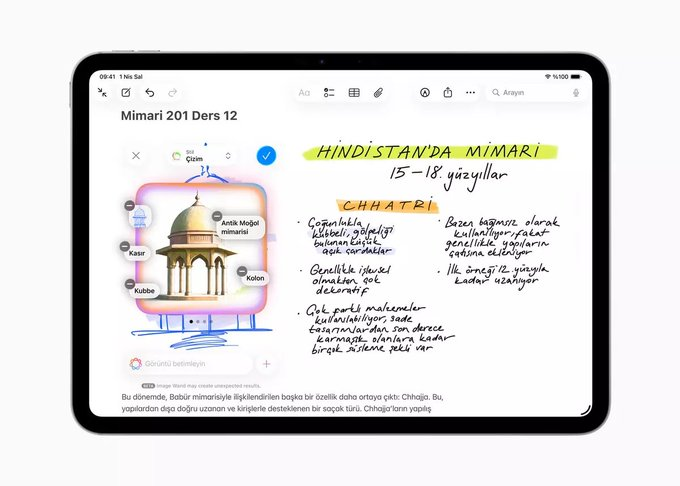 09:41 1 Nis Sal
%100
Aa
Arayın
Mimari 201 Ders 12
Stil
Çizim
Antik Moğol
mimarisi
Kasır
Kolon
Kubbe
Görüntü betimleyin
BETA Image Wand may create unexpected results.
HİNDİSTAN'DA MİMARİ
15-18. yüzyıllar
CHHATRİ
· Çoğunlukla
kubbeli, gölgeliği
bulunan küçük
açık çardaklar
· Genellikle işlevsel
olmaktan çok
dekoratif
· Çok farklı malzemeler
kullanılabiliyor, sade
tasarımlardan son derece
karmaşık olanlara kadar
birçok süsleme şekli var
· Bazen bağımsız olarak
kullanılıyor, fakat
genellikle yapıların
çatısına ekleniyor
· İlk örneği 12. yüzyıla
kadar uzanıyor
Bu dönemde, Babür mimarisiyle ilişkilendirilen başka bir özellik daha ortaya çıktı: Chhajja. Bu,
yapılardan dışa doğru uzanan ve kirişlerle desteklenen bir saçak türü. Chhajja'ların yapılış